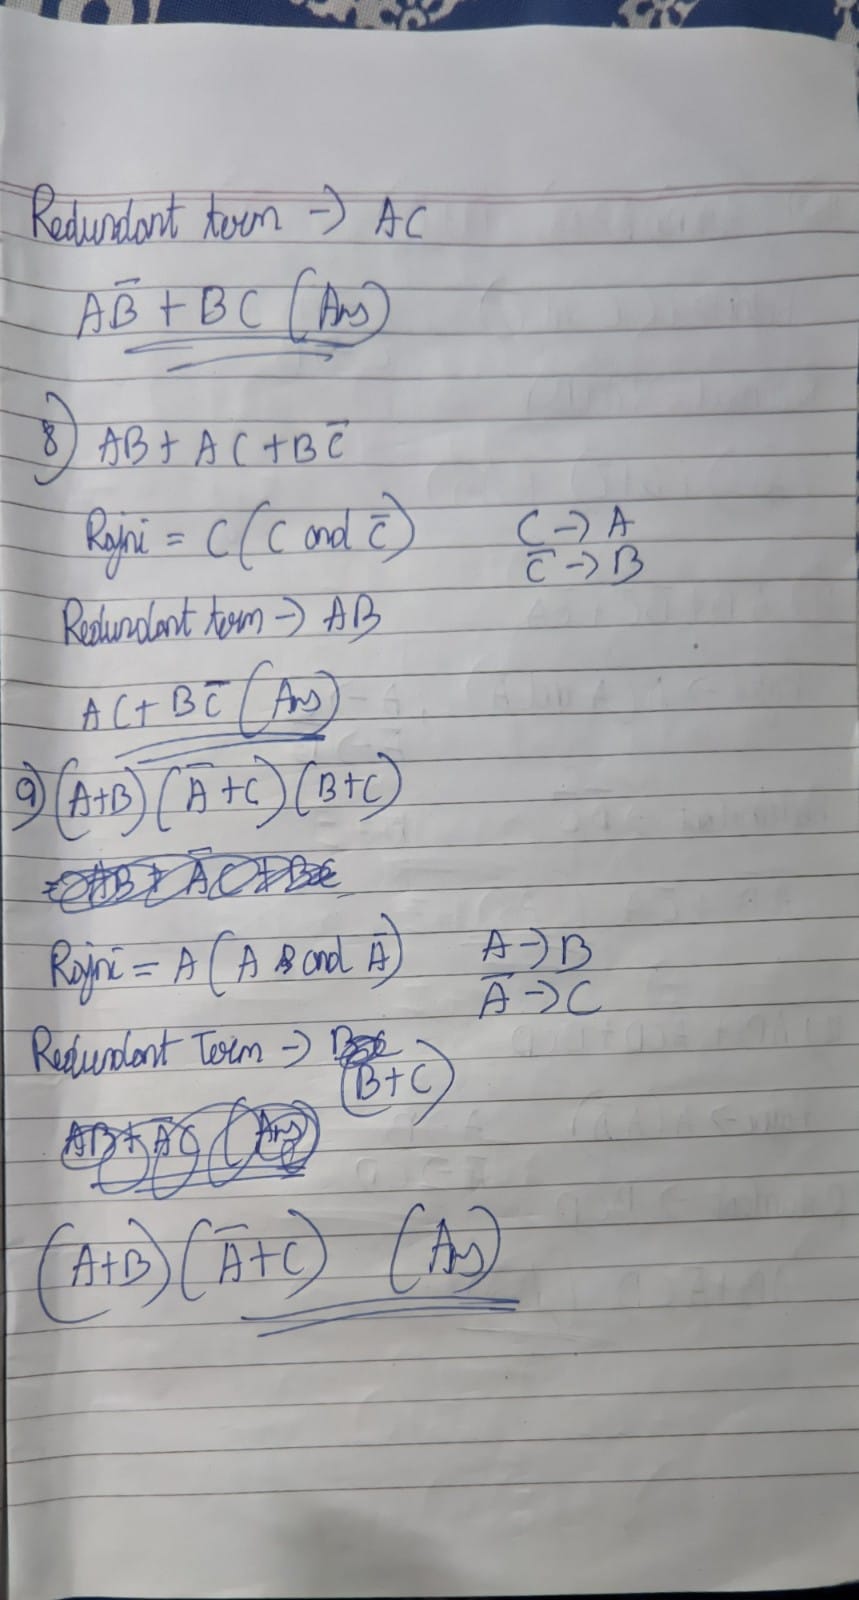 Redundant term -> AC
AB̅ + BC (Ans)
8) AB + AC + BC̅
Rajni = C (C and C̅) C -> A
C̅ -> B
Redundant term -> AB
AC + BC̅ (Ans)
9) (A+B) (A̅+C) (B+C)
Rajni = A (A and A̅) A -> B
A̅ -> C
Redundant Term ->
(B+C)
(A+B) (A̅+C) (Ans)